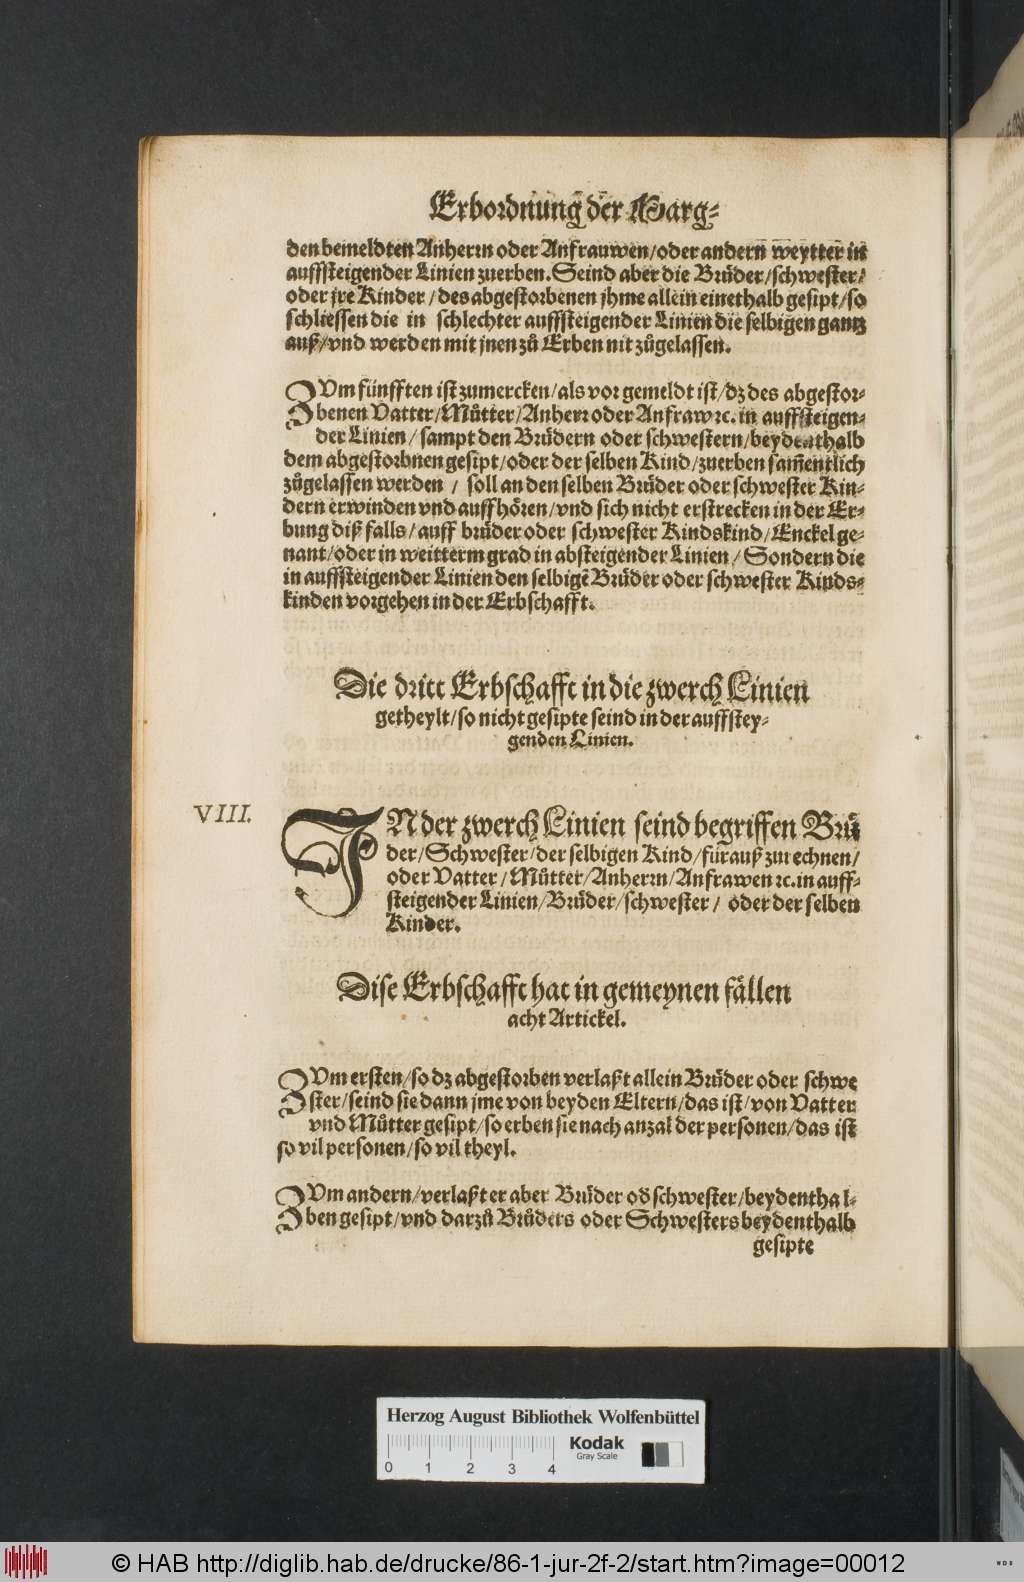 Erbordnung der Marg-
den bemeldten Anherrn oder Anfrauwen/oder andern weytter in
auffsteigender Linien zuerben. Seind aber die Brüder/schwester/
oder jre Kinder/des abgestorbenen jhme allein einethalb gesipt/so
schliessen die in schlechter auffsteigender Linien die selbigen gantz
auß/vnd werden mit jnen zů Erben nit zůgelassen.
ZVm fünfften ist zumercken/als vor gemeldt ist/dz des abgestor-
benen Vatter/Můtter/Anherr oder Anfraw ꝛc. in auffsteigen-
der Linien/sampt den Brüdern oder schwestern/beydenthalb
dem abgestorbnen gesipt/oder der selben Kind/zuerben sam̃entlich
zůgelassen werden/soll an den selben Brüder oder schwester Kin-
dern erwinden vnd auffhören/vnd sich nicht erstrecken in der Er-
bung diß falls/auff brüder oder schwester Kindskind/Enckel ge-
nant/oder in weitterm grad in absteigender Linien/Sondern die
in auffsteigender Linien den selbigẽ Brüder oder schwester Kinds-
kinden vorgehen in der Erbschafft.
Die dritt Erbschafft in die zwerch Linien
getheylt/so nicht gesipte seind in der auffstey-
genden Linien.
VIII.
IN der zwerch Linien seind begriffen Brü
der/Schwester/der selbigen Kind/fürauß zurechnen/
oder Vatter/Můtter/Anherrn/Anfrawen ꝛc. in auff-
steigender Linien/Brüder/schwester/oder der selben
Kinder.
Dise Erbschafft hat in gemeynen fällen
acht Artickel.
ZVm ersten/so dz abgestorben verlaßt allein Brüder oder schwe
ster/seind sie dann jme von beyden Eltern/das ist/von Vatter
vnd Můtter gesipt/so erben sie nach anzal der personen/das ist
so vil personen/so vil theyl.
ZVm andern/verlaßt er aber Brüder oď schwester/beydenthal-
ben gesipt/vnd darzů Brůders oder Schwesters beydenthalb
gesipte
Herzog August Bibliothek Wolfenbüttel
Kodak
Gray Scale
0 1 2 3 4
© HAB http://diglib.hab.de/drucke/86-1-jur-2f-2/start.htm?image=00012
WDB